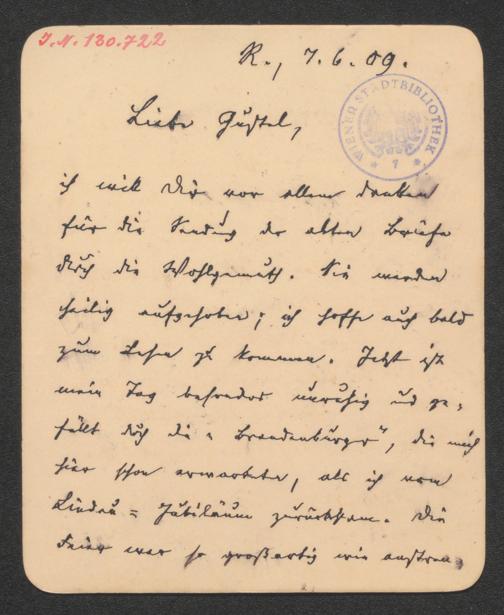 J.N. 130.722
R., 7.6.09.
WIENER STADTBIBLIOTHEK
Liebe Gustel,
ich will Dir vor allem danken
für die Sendung der alten Briefe
durch die Wohlgemuth. Sie werden
heilig aufgehoben; ich hoffe auch bald
zum Lesen zu kommen. Jetzt ist
mein Tag besonders unruhig und ge-
füllt durch die „Brandenburger", die mich
hier schon erwarteten, als ich vom
Lindau-Jubiläum zurückkam. Die
Feier war so großartig wie anstren-